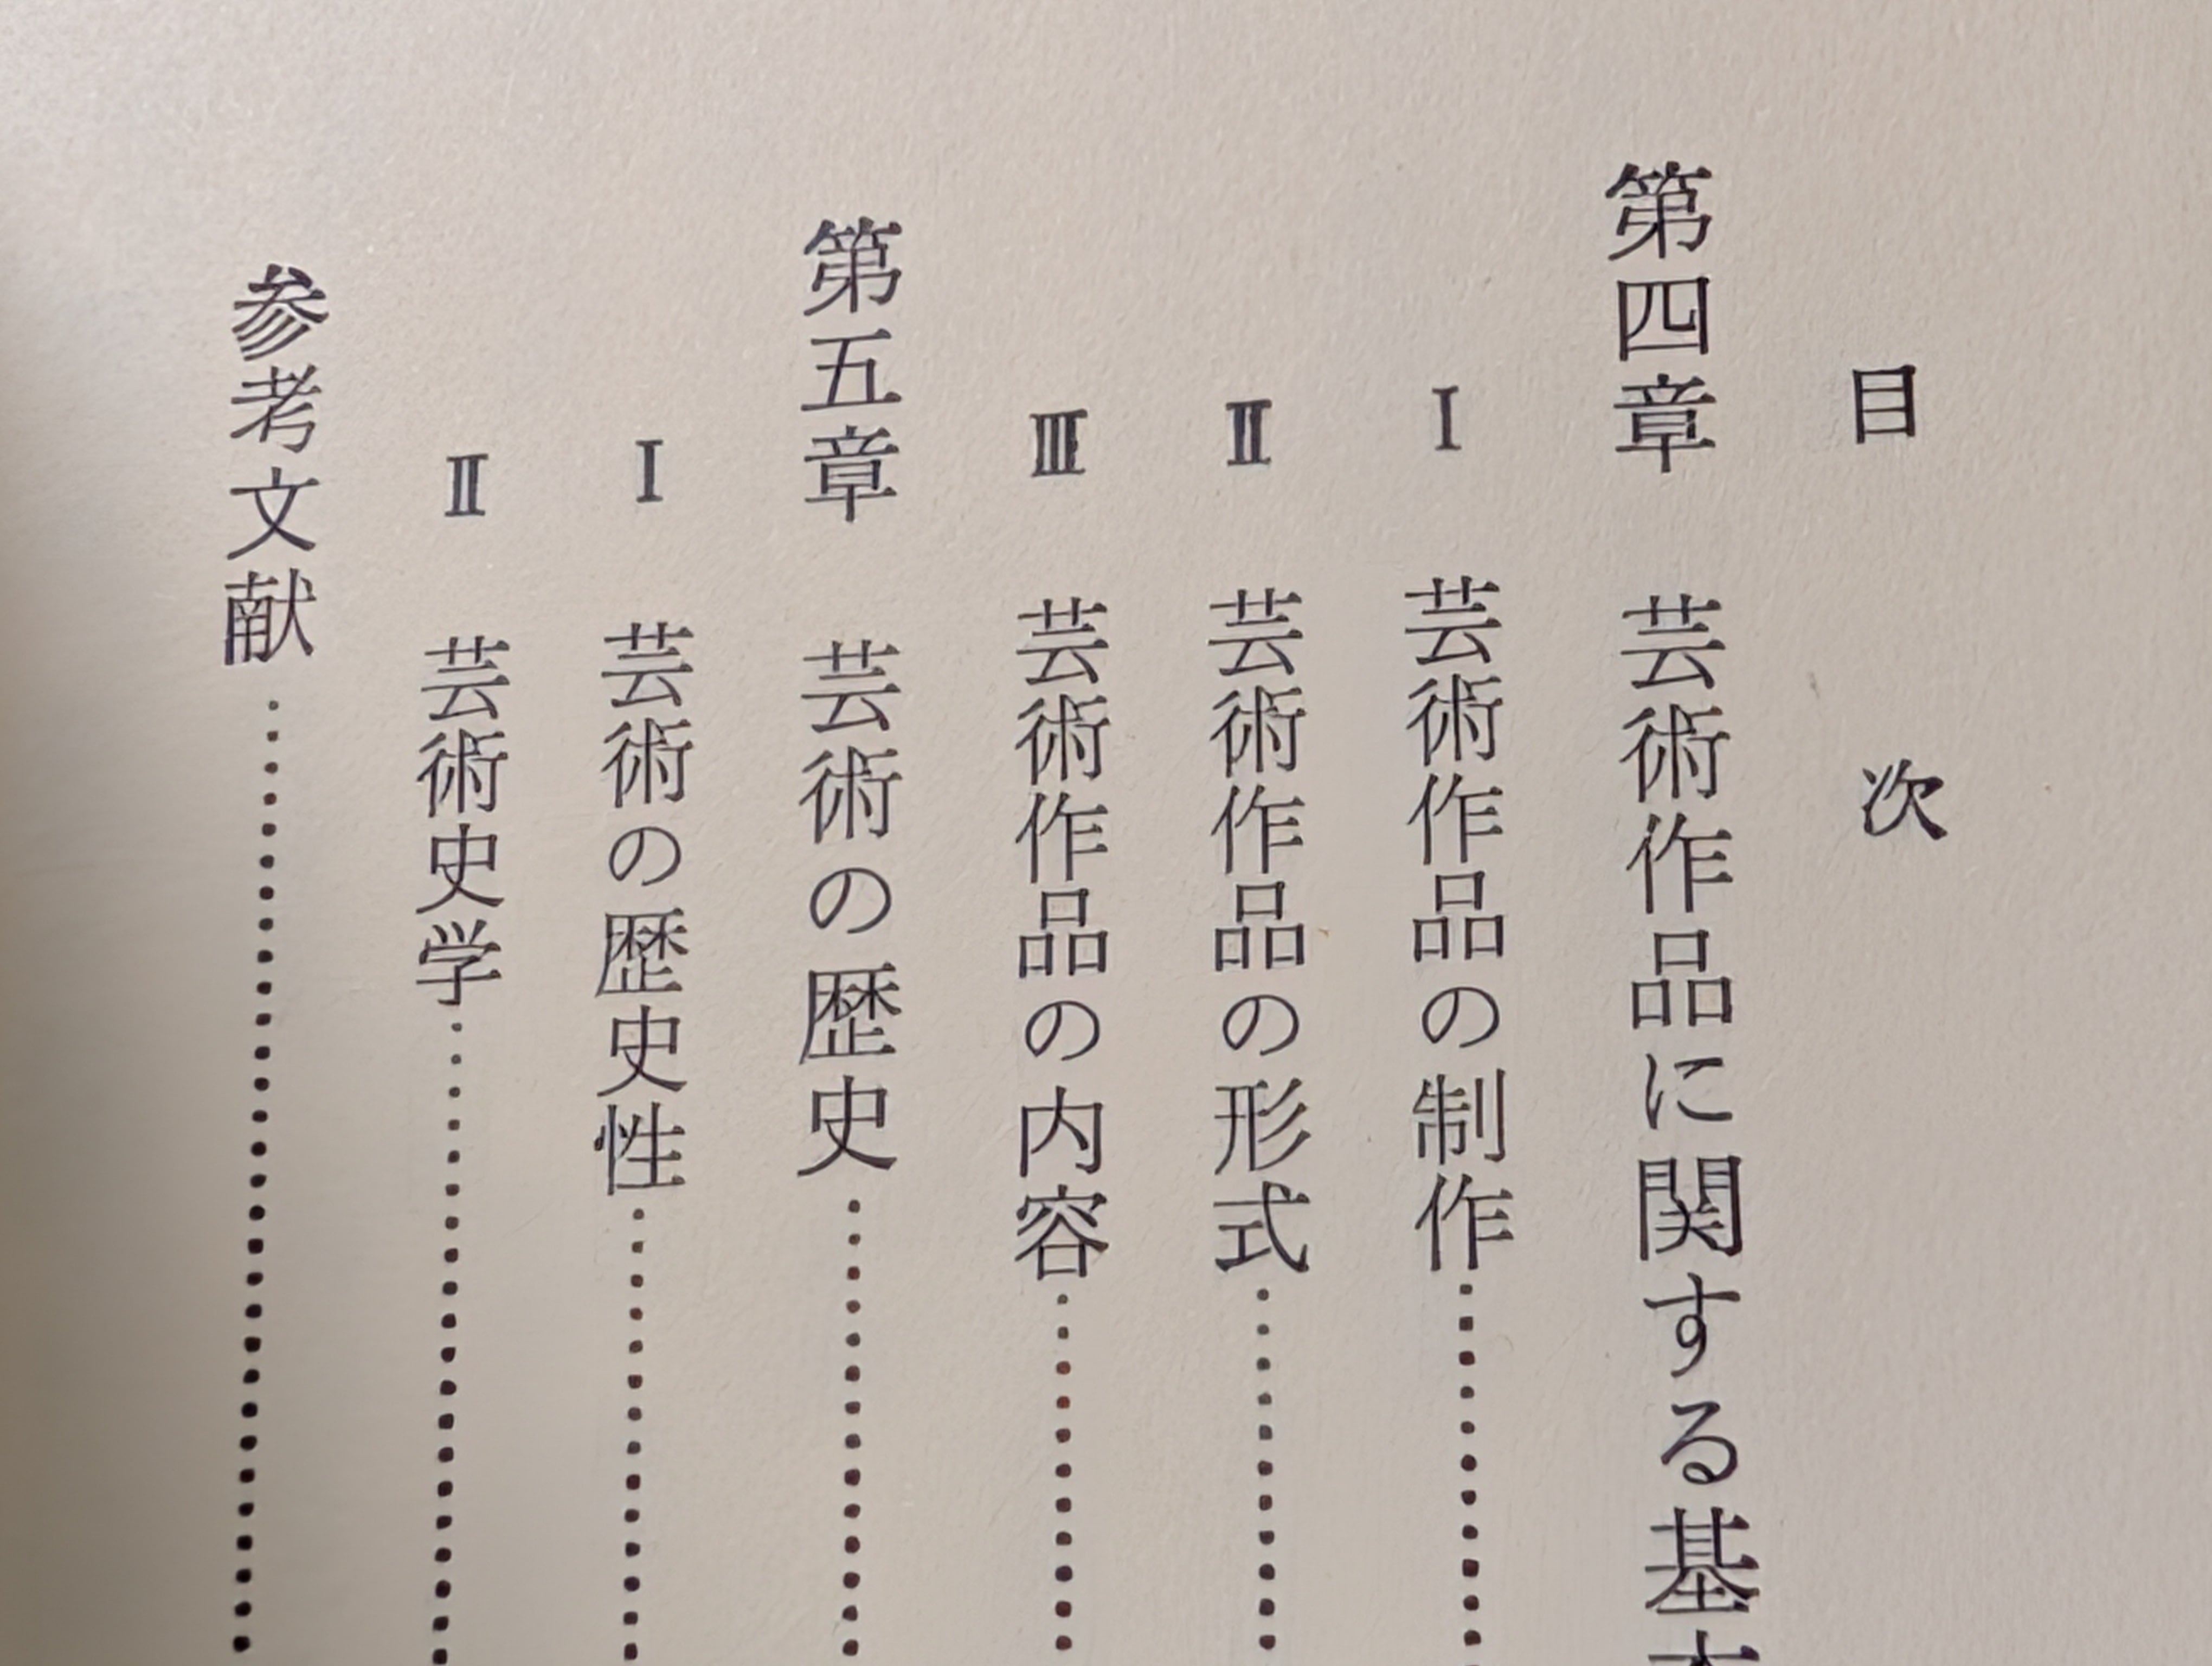 目次
第四章 芸術作品に関する基
Ⅰ 芸術作品の制作
Ⅱ 芸術作品の形式
Ⅲ 芸術作品の内容
第五章 芸術の歴史
Ⅰ 芸術の歴史性
Ⅱ 芸術史学
参考文献